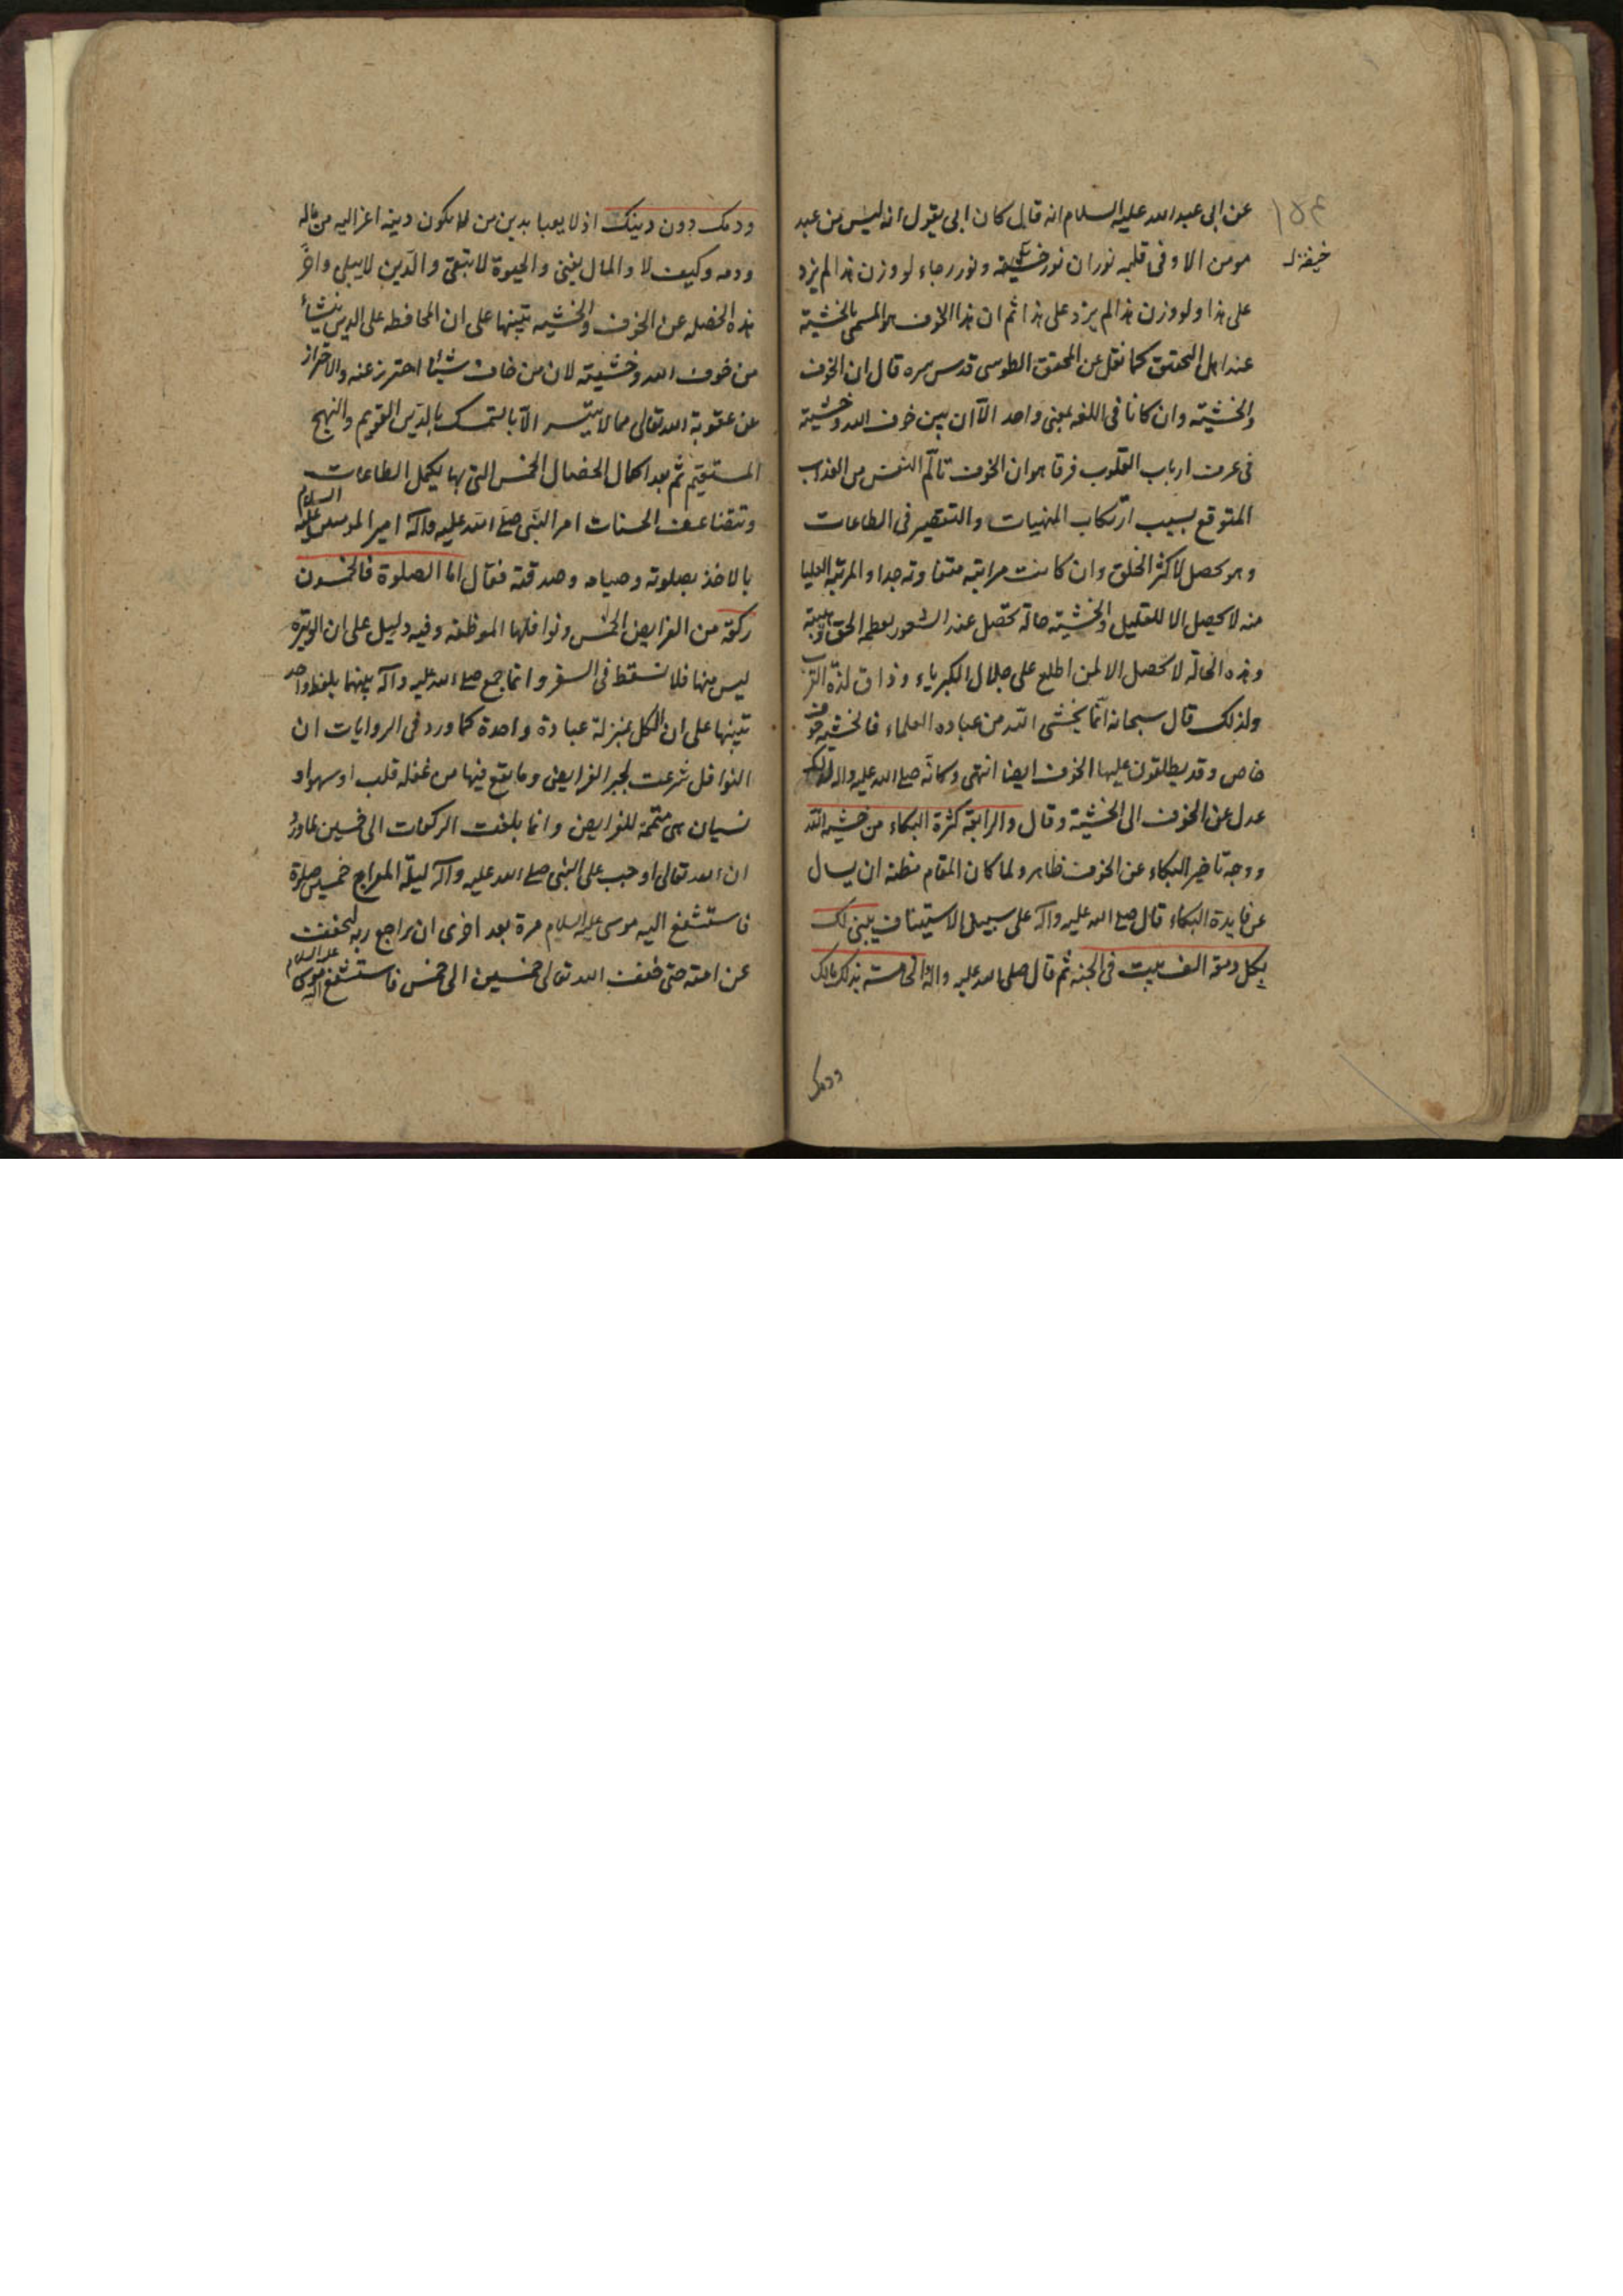 عن ابی عبد الله علیه السلام انه قال کان ابی یقول انه لیس من عبد
مومن الا و فی قلبه نوران نور خشیة و نور رجاء لو وزن هذا لم یزد
خیفة
علی هذا و لو وزن هذا لم یزد علی هذا ثم ان هذا الخوف هو المسمی بالخشیة
عند اهل التحقیق کما نقل عن المحقق الطوسی قدس سره قال ان الخوف
والخشیة وان کانا فی اللغه بمعنی واحد الا ان بین خوف الله وخشیته
فی عرف ارباب القلوب فرقا هو ان الخوف تألم النفس من العذاب
المتوقع بسبب ارتکاب المنهیات والتقصیر فی الطاعات
وهو یحصل لاکثر الخلق وان کانت مراتبه متفاوته جدا والمرتبة العلیا
منه لا یحصل الا للقلیل والخشیة حالة تحصل عند الشعور بعظمه الحق وهیبته
وهذه الحالة لا تحصل الا لمن اطلع علی جلال الکبریاء وذاق لذة القرب
ولذلک قال سبحانه انما یخشی الله من عباده العلماء فالخشیة خوف
خاص وقد یطلقون علیها الخوف ایضا انتهی وکانه صلی الله علیه واله لذلک
عدل عن الخوف الی الخشیة وقال والرابعة کثرة البکاء من خشیة الله
ووجه تاخیر البکاء عن الخوف ظاهر ولما کان المقام مظنه ان یسال
عن فایدة البکاء قال صلی الله علیه وآله علی سبیل الاستیناف یبنی لک
بکل دمعة الف بیت فی الجنة ثم قال صلی الله علیه واله والخامسة بذلک مالک
ودمک
ودمک دون دینک اذ لا یعبا بدین من لا یکون دینه اعز الیه من ماله
ودمه وکیف لا والمال یفنی والحیوة لا تبقی والدین لا یبلی واخر
هذه الخصله عن الخوف والخشیه تنبیها علی ان المحافظه علی الدین ینشأ
من خوف الله وخشیته لان من خاف شیئا احترز عنه والاحتراز
عن عقوبة الله تعالی مما لا یتیسر الا بالتمسک بالدین القویم والنهج
المستقیم ثم بعد اکمال الخصال الخمس التی بها یکمل الطاعات
وتتضاعف الحسنات امر النبی صلی الله علیه وآله امیر المومنین علیه السلام
بالاخذ بصلوته وصیامه وصدقته فقال اما الصلوة فالخمسون
رکعة من الفرایض الخمس ونوافلها الموظفة وفیه دلیل علی ان الوتیرة
لیس منها فلا تسقط فی السفر وانما جمع صلی الله علیه وآله بینهما بلفظ واحد
تنبیها علی ان الکل بمنزلة عبادة واحدة کما ورد فی الروایات ان
النوافل شرعت لجبر الفرایض وما یقع فیها من غفله قلب او سهو او
نسیان هی متممة للفرایض وانما بلغت الرکعات الی خمسین لما ورد
ان الله تعالی اوجب علی النبی صلی الله علیه وآله لیلة المعراج خمسین صلوة
فاستشفع الیه موسی علیه السلام مرة بعد اخری ان یراجع ربه لیخفف
عن امته حتی خفف الله تعالی خمسین الی خمس فاستشفع الیه موسی علیه السلام